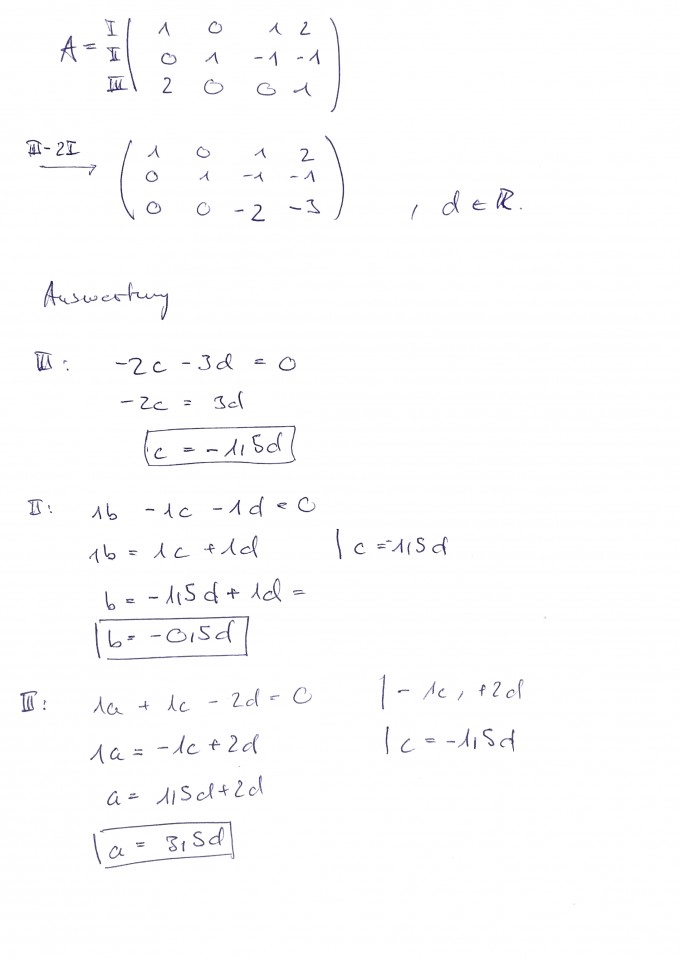 I 1 0 1 2
A = II 0 1 -1 -1
III 2 0 0 1
III-2I 1 0 1 2
0 1 -1 -1
0 0 -2 -3 , d ∈ ℝ.
Auswertung
III: -2c - 3d = 0
-2c = 3d
c = -1,5d
II: 1b - 1c - 1d = 0
1b = 1c + 1d | c = -1,5d
b = -1,5d + 1d =
b = -0,5d
III: 1a + 1c - 2d = 0 | - 1c, +2d
1a = -1c + 2d | c = -1,5d
a = 1,5d + 2d
a = 3,5d